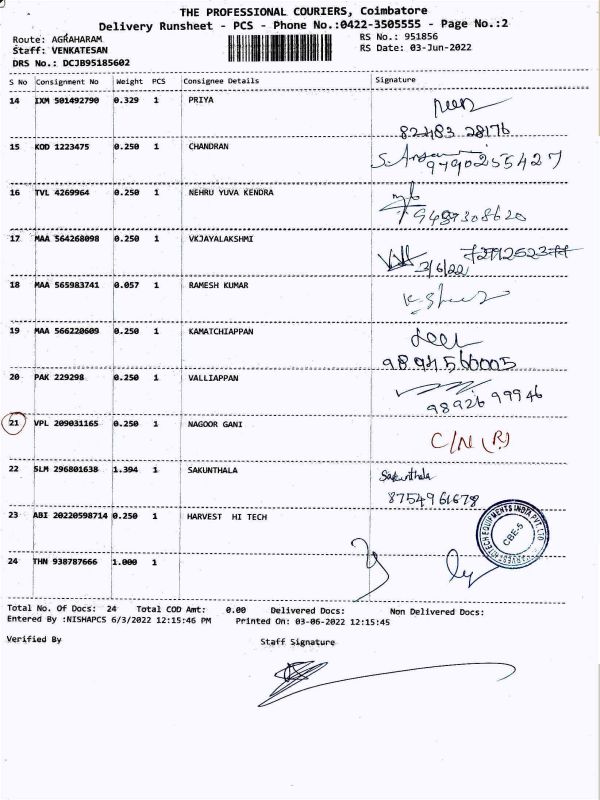 THE PROFESSIONAL COURIERS, Coimbatore
Delivery Runsheet - PCS - Phone No.:0422-3505555 - Page No.:2
Route: AGRAHARAM RS No.: 951856
Staff: VENKATESAN RS Date: 03-Jun-2022
DRS No.: DCJB95185602
S No Consignment No Weight PCS Consignee Details Signature
14 IXM 501492790 0.329 1 PRIYA
82483 28176
15 KOD 1223475 0.250 1 CHANDRAN
9790255427
16 TVL 4269964 0.250 1 NEHRU YUVA KENDRA
9487308620
17 MAA 564268098 0.250 1 VKJAYALAKSHMI
3/6/22
18 MAA 565983741 0.057 1 RAMESH KUMAR
19 MAA 566220609 0.250 1 KAMATCHIAPPAN
20 PAK 229298 0.250 1 VALLIAPPAN
98926 99946
21 VPL 209031165 0.250 1 NAGOOR GANI C/N (R)
22 SLM 296801638 1.394 1 SAKUNTHALA Sakunthala
8754961678
23 ABI 20220598714 0.250 1 HARVEST HI TECH
CBE-5
24 THN 938787666 1.000 1
Total No. Of Docs: 24 Total COD Amt: 0.00 Delivered Docs: Non Delivered Docs:
Entered By :NISHAPCS 6/3/2022 12:15:46 PM Printed On: 03-06-2022 12:15:45
Verified By Staff Signature